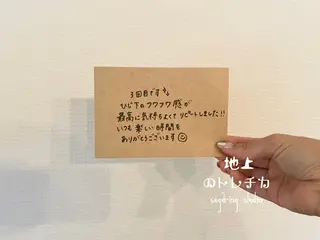 3回目です
ひじ下のフワフワ感が
最高に気持ちよくて リピートしました!!
いつも楽しい時間を
ありがとうございます☺
地上
のトレチカ